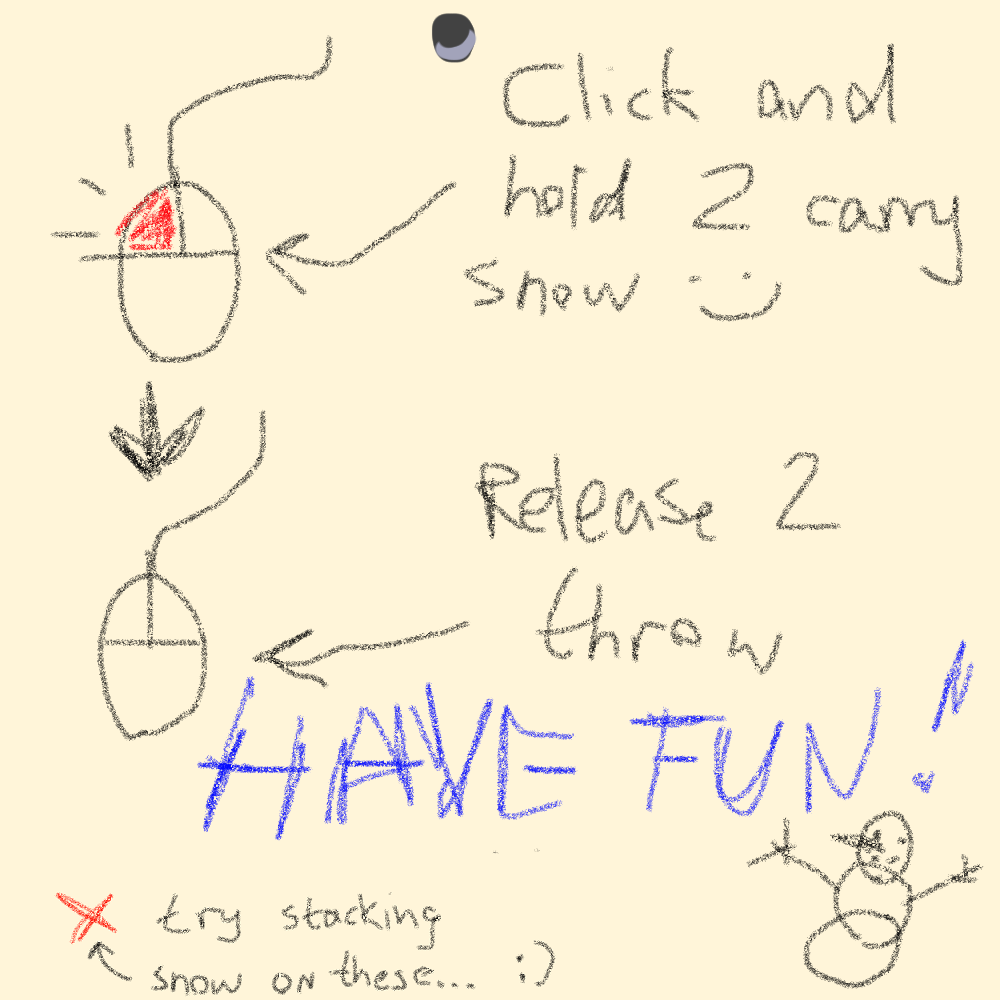 Click and
hold 2 carry
snow :)
Release 2
throw
HAVE FUN!
try stacking
snow on these... :)